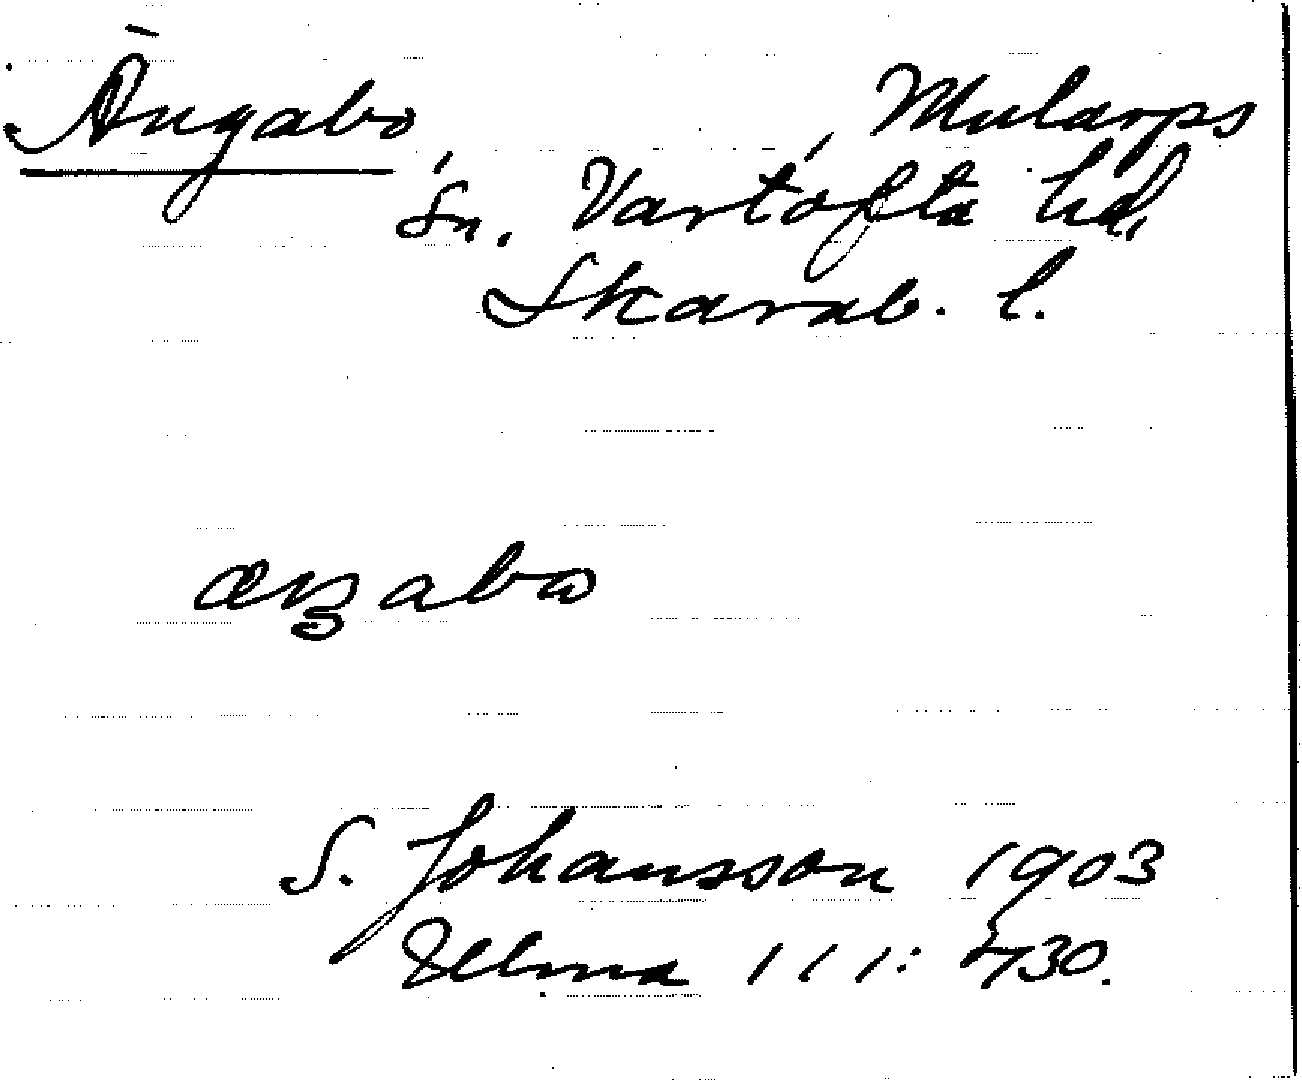 Ängabo, Mularps
Sn, Vartofta hd,
Skarab. l.
æŋabo
S. Johansson 1903
Ulma 111: 430.